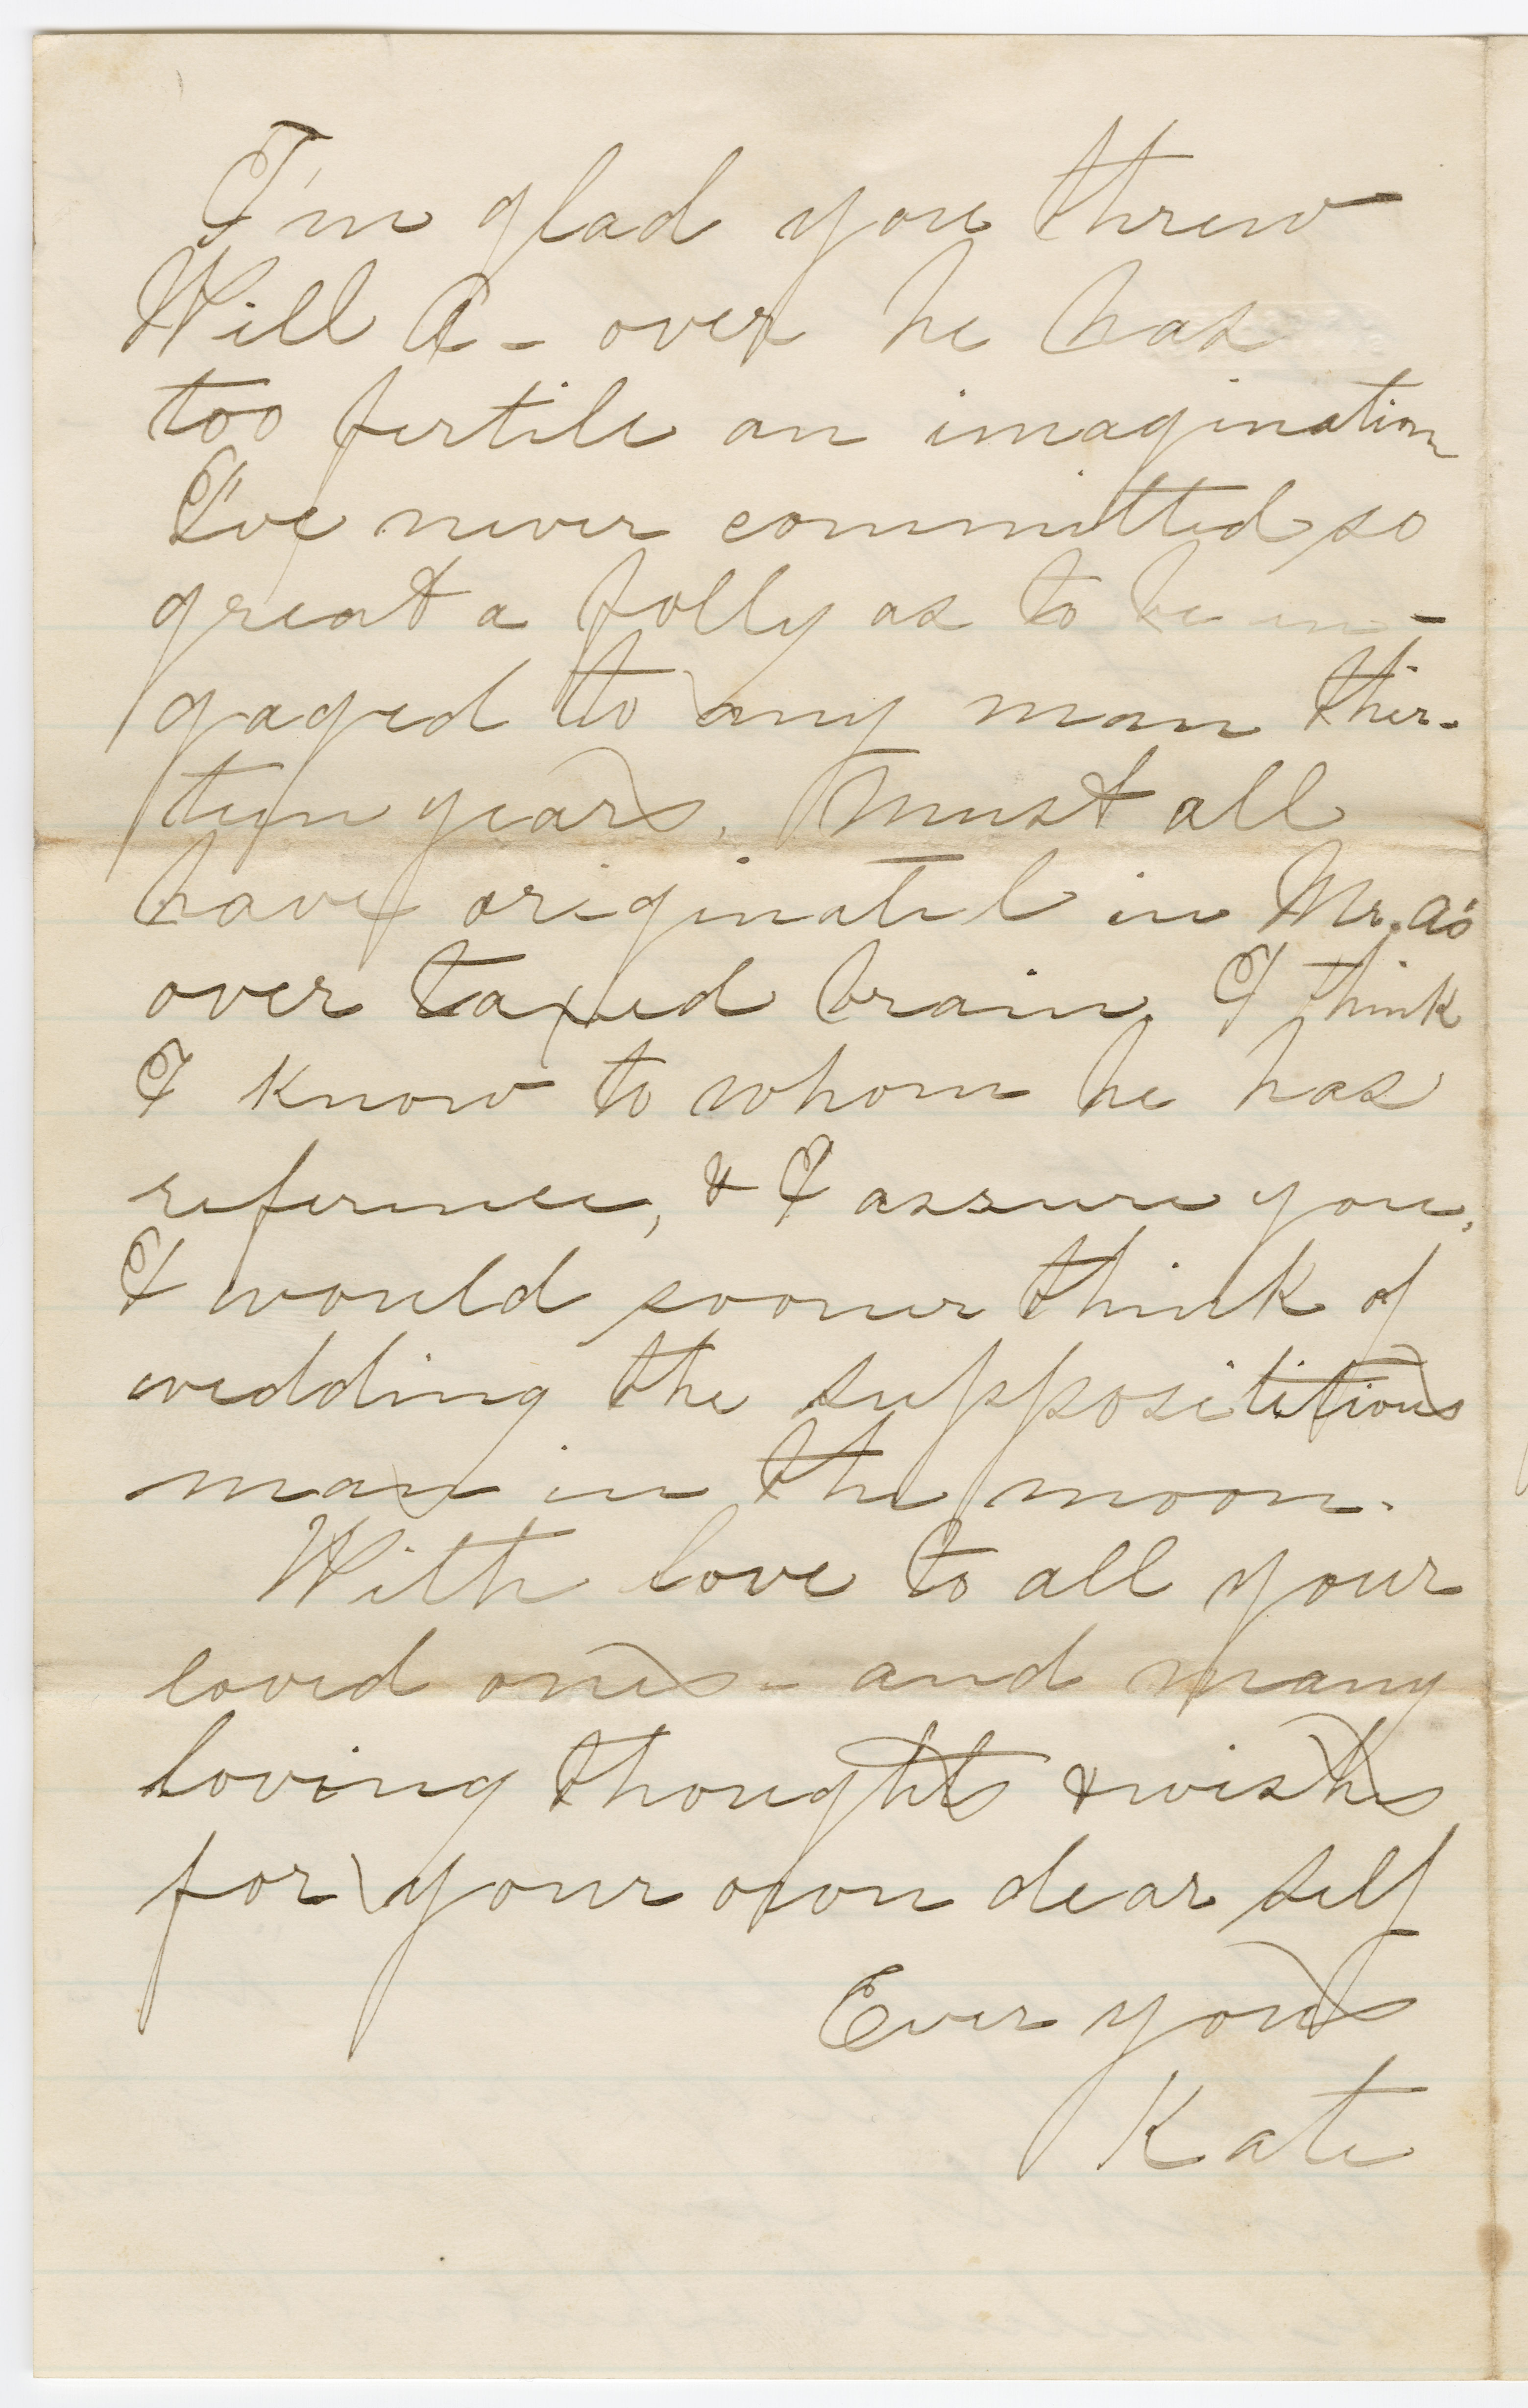 I'm glad you threw
Will A - over he has
too fertile an imagination
I've never committed so
great a folly as to be en-
gaged to any man thir-
teen years. Must all
have originated in Mr. A's
over taxed brain. I think
I know to whom he has
reference, & I assure you,
I would sooner think of
wedding the supposititious
man in the moon.
With love to all your
loved ones - and many
loving thoughts & wishes
for your own dear self
Ever yours
Kate